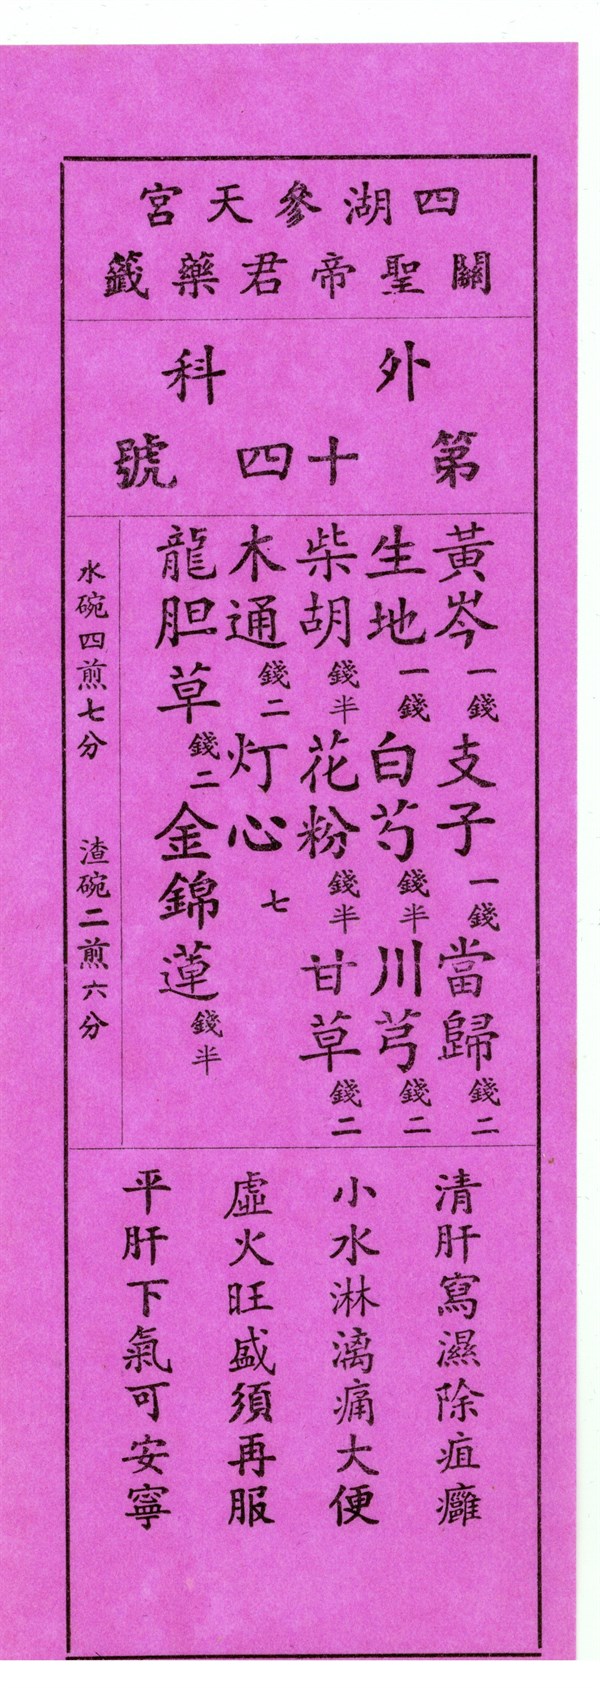 四湖參天宮
關聖帝君藥籤
外科
第十四號
黃岑一錢支子一錢當歸錢二
生地一錢白芍錢半川芎錢二
柴胡錢半花粉錢半甘草錢二
木通錢二灯心七
龍胆草錢二金錦蓮錢半
水碗四煎七分 渣碗二煎六分
清肝寫濕除疽癰
小水淋漓痛大便
虛火旺盛須再服
平肝下氣可安寧